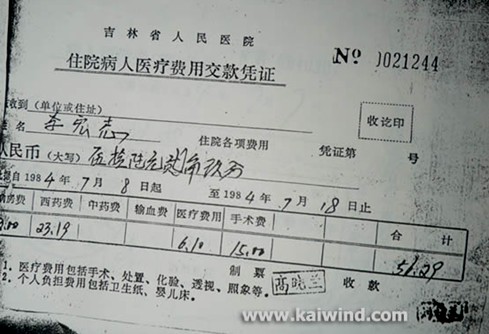 吉林省人民医院
住院病人医疗费用交款凭证
№ 0021244
收到(单位或住址)
收讫印
名 李宏志 住院各项费用 凭证第 号
人民币(大写) 伍拾 元贰角玖分
自1984年7月8日起 至1984年7月18日止
病房费 西药费 中药费 输血费 医疗费用 手术费 合计
9.00 23.19 6.10 15.00
1. 医疗费用包括手术、处置、化验、透视、照象等。
制票 高晓兰 收款
2. 个人负担费用包括卫生纸、婴儿床。
www.kaiwind.com